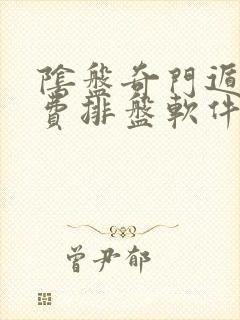 陰盤奇門遁
費排盤軟件
曾尹郁